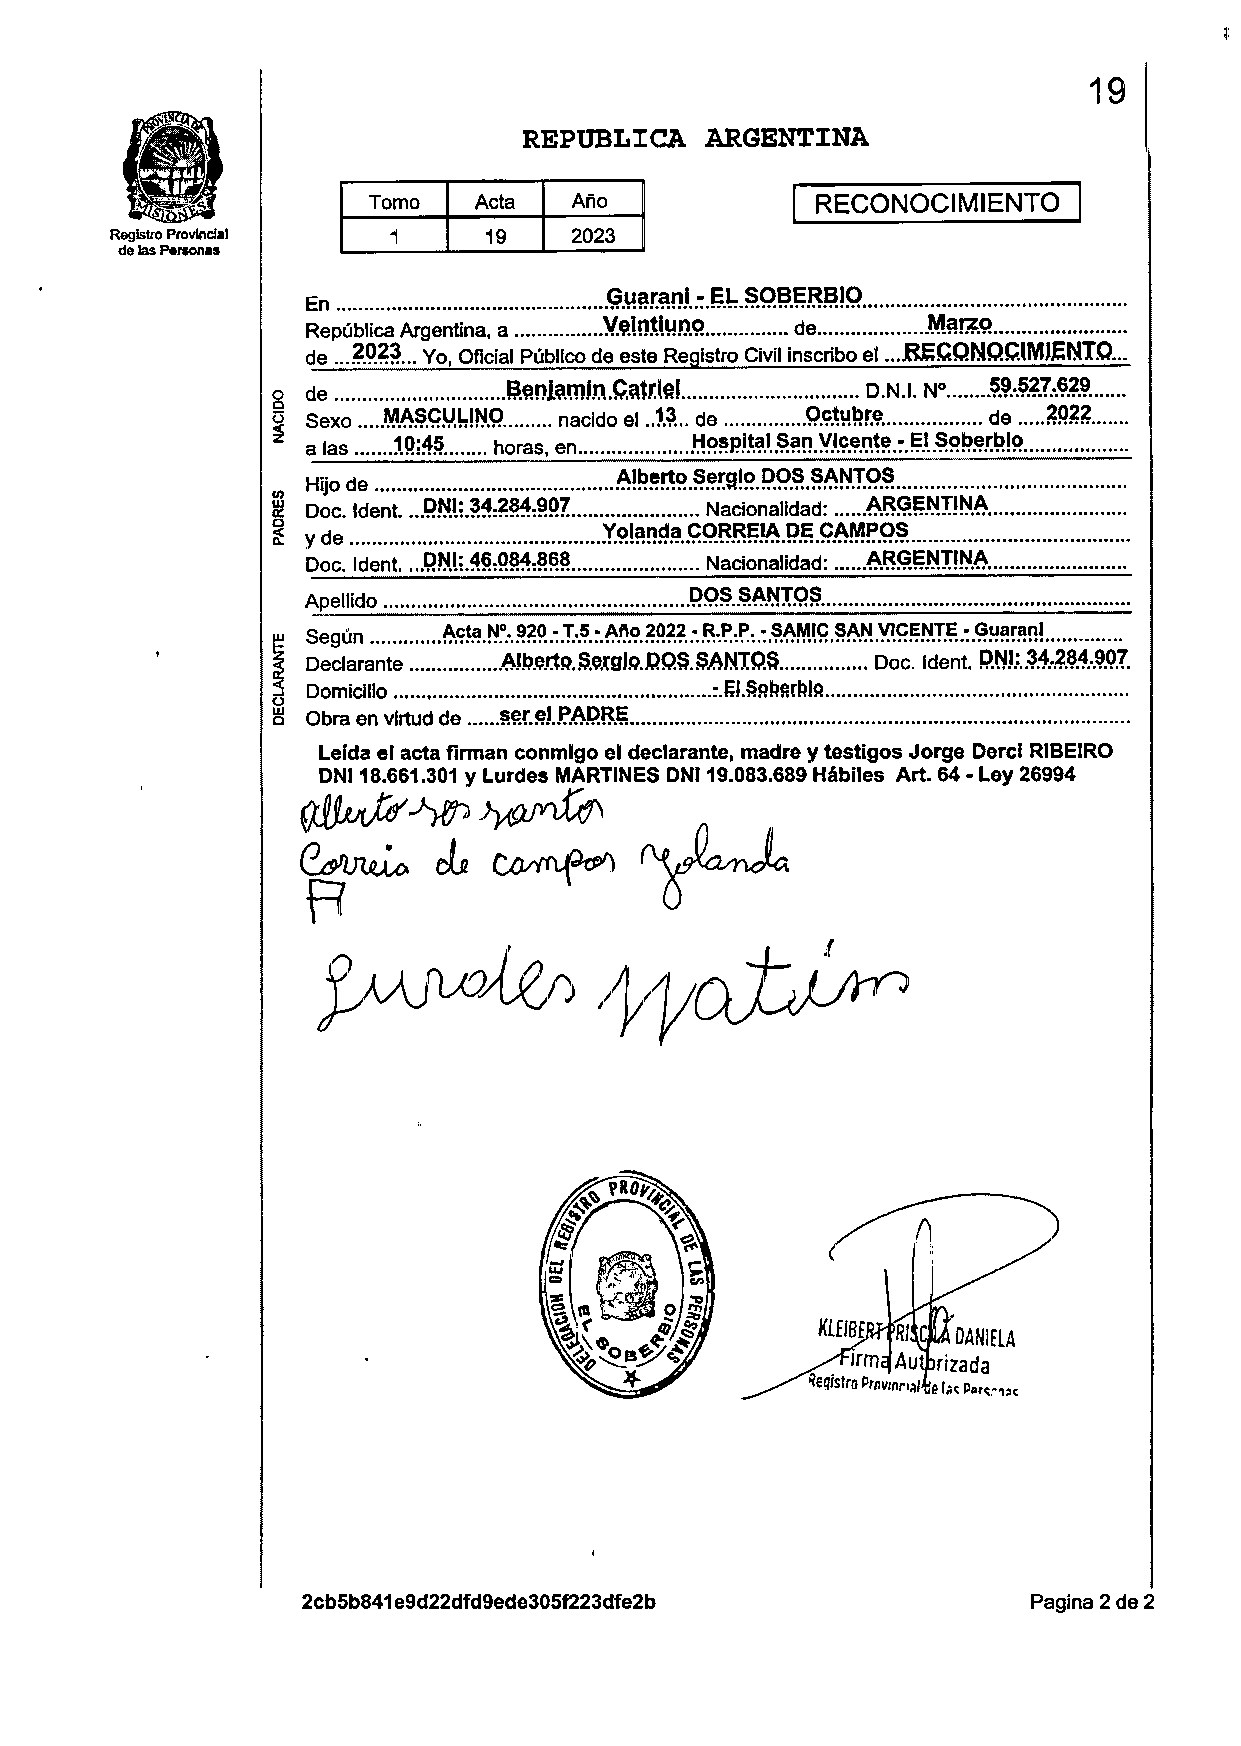 19
PROVINCIA DE
MISIONES
Registro Provincial
de las Personas
REPUBLICA ARGENTINA
Tomo Acta Año
1 19 2023
RECONOCIMIENTO
En Guaraní - EL SOBERBIO
República Argentina, a Veintiuno de Marzo
de 2023 Yo, Oficial Público de este Registro Civil inscribo el RECONOCIMIENTO
NACIDO
de Benjamin Catriel D.N.I. Nº 59.527.629
Sexo MASCULINO nacido el 13 de Octubre de 2022
a las 10:45 horas, en Hospital San Vicente - El Soberbio
PADRES
Hijo de Alberto Sergio DOS SANTOS
Doc. Ident. DNI: 34.284.907 Nacionalidad: ARGENTINA
y de Yolanda CORREIA DE CAMPOS
Doc. Ident. DNI: 46.084.868 Nacionalidad: ARGENTINA
Apellido DOS SANTOS
DECLARANTE
Según Acta Nº. 920 - T.5 - Año 2022 - R.P.P. - SAMIC SAN VICENTE - Guaraní
Declarante Alberto Sergio DOS SANTOS Doc. Ident. DNI: 34.284.907
Domicilio - El Soberbio
Obra en virtud de ser el PADRE
Leída el acta firman conmigo el declarante, madre y testigos Jorge Derci RIBEIRO
DNI 18.661.301 y Lurdes MARTINES DNI 19.083.689 Hábiles Art. 64 - Ley 26994
Alberto dos santos
Correia de campos Yolanda
Lurdes
DELEGACION DEL REGISTRO PROVINCIAL DE LAS PERSONAS
EL SOBERBIO
KLEIBERT PRISCILA DANIELA
Firma Autorizada
Registro Provincial de las Personas
2cb5b841e9d22dfd9ede305f223dfe2b
Pagina 2 de 2